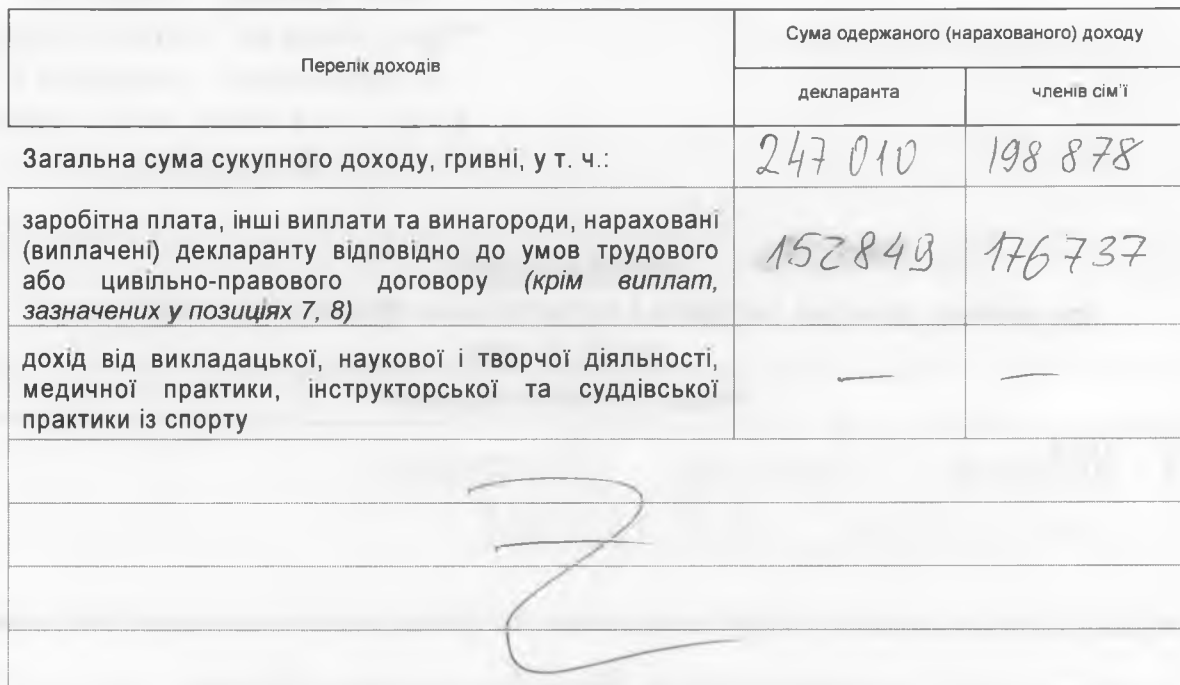 Перелік доходів
Сума одержаного (нарахованого) доходу
декларанта
членів сім'ї
Загальна сума сукупного доходу, гривні, у т. ч.:
247 010
198 878
заробітна плата, інші виплати та винагороди, нараховані
(виплачені) декларанту відповідно до умов трудового
або цивільно-правового договору (крім виплат,
зазначених у позиціях 7, 8)
152849
176737
дохід від викладацької, наукової і творчої діяльності,
медичної практики, інструкторської та суддівської
практики із спорту
—
—